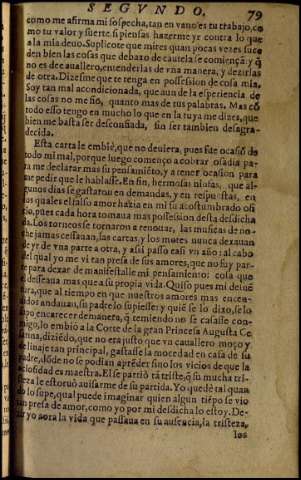 SEGVNDO. 79
como me afirma mi sospecha, tan en vano es tu trabajo, co
mo tu valor y suerte si piensas hazerme yr contra lo que
a la mia deuo. Suplicote que mires quan pocas vezes suce
den bien las cosas que debaxo de cautela se comiençã: y q̃
no es de cauallero, entenderlas de vna manera, y dezirlas
de otra. Dizesme que te tenga en possession de cosa mia,
Soy tan mal acondicionada, que aun de la experiencia de
las cosas no me fio, quanto mas de tus palabras. Mas cõ
todo esso tengo en mucho lo que en la tuya me dizes, que
bien me basta ser desconfiada, sin ser tambien desagra-
decida.
Esta carta le embiè, que no deuiera, pues fue ocasiõ de
todo mi mal, porque luego començo a cobrar osadia pa-
ra me declarar mas su pensamiẽto, y a tener ocasion para
me pedir que le hablasse. En fin, hermosas nimfas, que al-
gunos dias se gastaron en demandas, y en respuestas, en
los quales el falso amor hazia en mi su acostumbrado ofi
cio, pues cada hora tomaua mas possession desta desdicha
da. Los torneos se tornaron a renouar, las musicas de no-
che jamas cessauan, las cartas y los motes nunca dexauan
de yr de vna parte a otra, y assi passò casi vn año: al cabo
del qual yo me vi tan presa de sus amores, que no fuy par-
te para dexar de manifestalle mi pensamiento: cosa que
el desseaua mas que a su propia vida. Quiso pues mi desue
tura, que al tiempo en que nuestros amores mas encen-
didos andauan, su padre lo supiesse: y quiẽ se lo dixo, se lo
supo encarecer de manera, q̃ temiendo no se casasse con-
migo, lo embio a la Corte de la gran Princesa Augusta Ce
sarina, diziẽdo, que no era justo que vn cauallero moço y
de linaje tan principal, gastasse la mocedad en casa de su
padre, dõde no se podian aprẽder sino los vicios de que la
ociosidad es maestra. El se partiò tã triste, q̃ su mucha tri-
steza le estoruò auisarme de su partida. Yo quedè tal quan
do lo supe, qual puede imaginar quien algun tiẽpo se vio
tan presa de amor, como yo por mi desdicha lo estoy. De-
zir yo aora la vida que passaua en su ausencia, la tristeza,
los